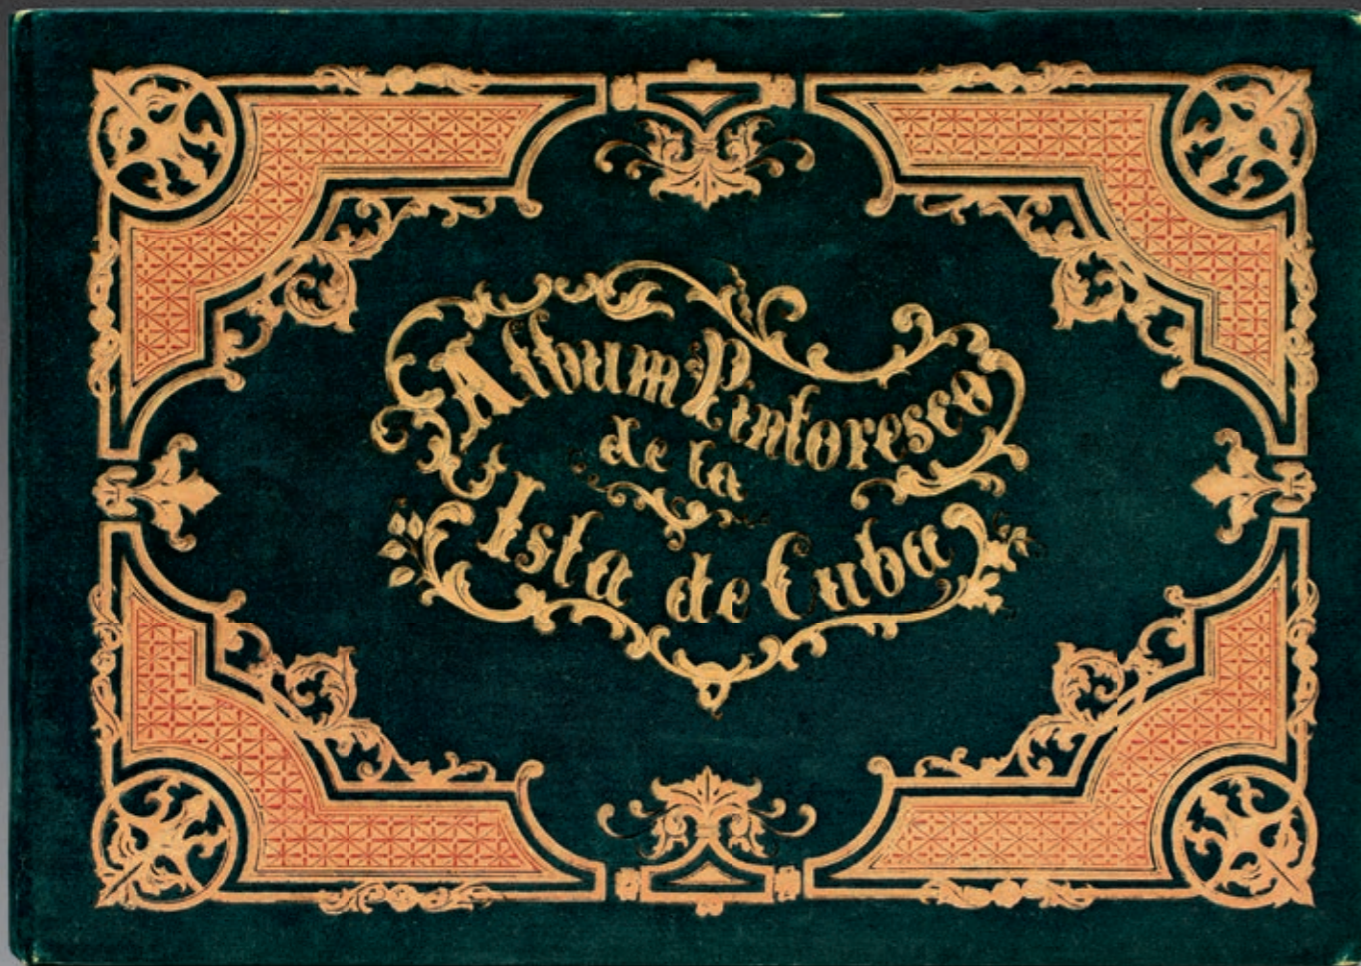 Album Pintoresco
de la
Isla de Cuba